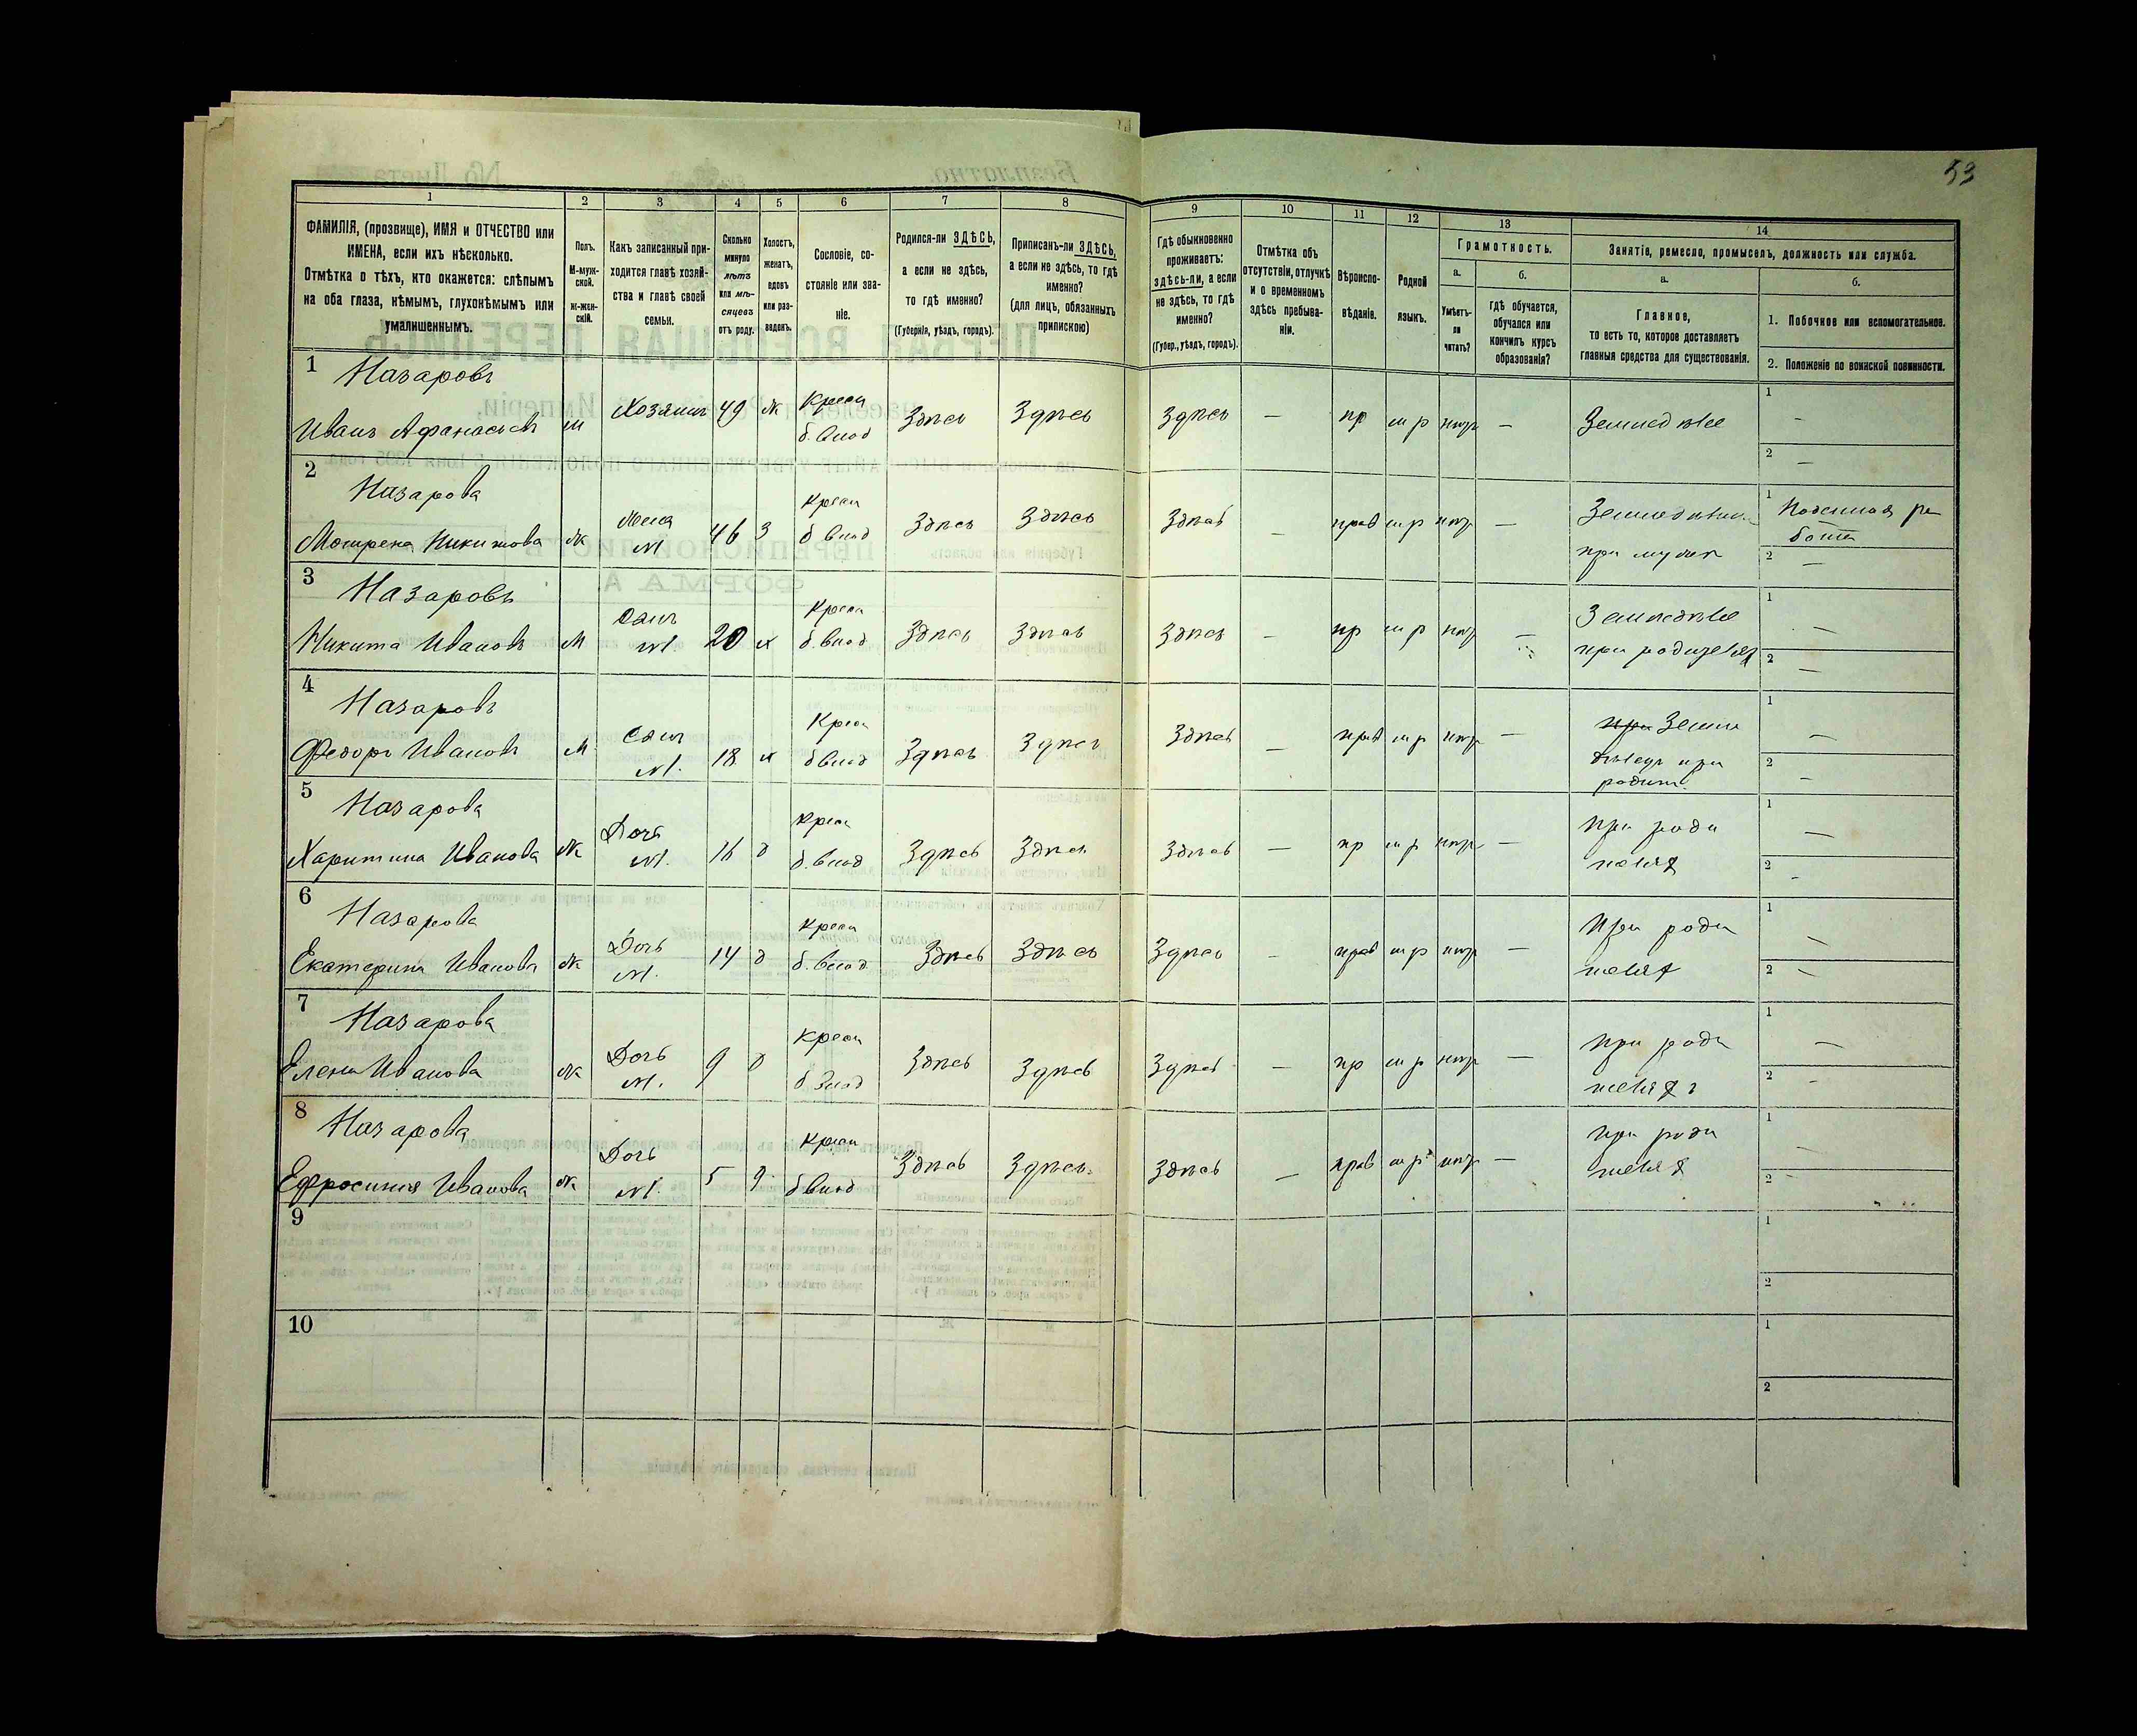 53
1 2 3 4 5 6 7 8 9 10 11 12 13 14
ФАМИЛІЯ, (прозвище), ИМЯ и ОТЧЕСТВО или
ИМЕНА, если ихъ нѣсколько.
Отмѣтка о тѣхъ, кто окажется: слѣпымъ
на оба глаза, нѣмымъ, глухонѣмымъ или
умалишеннымъ.
Полъ.
М-муж-
ской.
ж-жен-
скій.
Какъ записанный при-
ходится главѣ хозяй-
ства и главѣ своей
семьи.
Сколько
минуло
лѣтъ
или мѣ-
сяцевъ
отъ роду.
Холостъ,
женатъ,
вдовъ
или раз-
веденъ.
Сословіе, со-
стояніе или зва-
ніе.
Родился-ли ЗДѢСЬ,
а если не здѣсь,
то гдѣ именно?
(Губернія, уѣздъ, городъ).
Приписанъ-ли ЗДѢСЬ,
а если не здѣсь, то гдѣ
именно?
(для лицъ, обязанныхъ
припискою)
Гдѣ обыкновенно
проживаетъ:
здѣсь-ли, а если
не здѣсь, то гдѣ
именно?
(Губер., уѣздъ, городъ).
Отмѣтка объ
отсутствіи, отлучкѣ
и о временномъ
здѣсь пребыва-
ніи.
Вѣроиспо-
вѣданіе.
Родной
языкъ.
Грамотность.
а.
Умѣетъ-
ли
читать?
б.
Гдѣ обучается,
обучался или
кончилъ курсъ
образованія?
Занятіе, ремесло, промыселъ, должность или служба.
а.
Главное,
то есть то, которое доставляетъ
главныя средства для существованія.
б.
1. Побочное или вспомогательное.
2. Положеніе по воинской повинности.
1 Назаровъ
Иванъ Афанасьевъ м Хозяинъ 49 ж Крест б. влад Здѣсь Здѣсь Здѣсь — пр м р нтр — Земледѣлие 1 — 2 —
2 Назарова
Мотрена Никитова ж Жена м 46 з Крест б влад Здѣсь Здѣсь Здѣсь — прав м р нтр —
при мужѣ 1 Поденная ра
бота 2 —
3 Назаровъ
Никита Ивановъ м Сынъ м. 20 х Крест б. влад Здѣсь Здѣсь Здѣсь — пр м р нтр — Земледѣлие
1 — 2 —
4 Назаровъ
Федоръ Ивановъ м Сынъ м. 18 х Крест б влад Здѣсь Здѣсь Здѣсь — прав м р нтр —
1 — 2 —
5 Назарова
Харитина Иванова ж Дочь м. 16 д Крест б. влад Здѣсь Здѣсь Здѣсь — пр м р нтр — при роди
теляхъ 1 — 2 -
6 Назарова
Екатерина Иванова ж Дочь м. 14 д Крест б. влад. Здѣсь Здѣсь Здѣсь — прав м р нтр — При роди
теляхъ 1 — 2 —
7 Назарова
Елена Иванова ж Дочь м. 9 д Крест б влад Здѣсь Здѣсь Здѣсь — пр м р нтр — при роди
теляхъ 1 — 2 -
8 Назарова
Ефросиния Иванова ж Дочь м. 5 д. Крест б влад Здѣсь Здѣсь Здѣсь — прав м р нтр — при роди
теляхъ 1 — 2 -
9 1 2
10 1 2